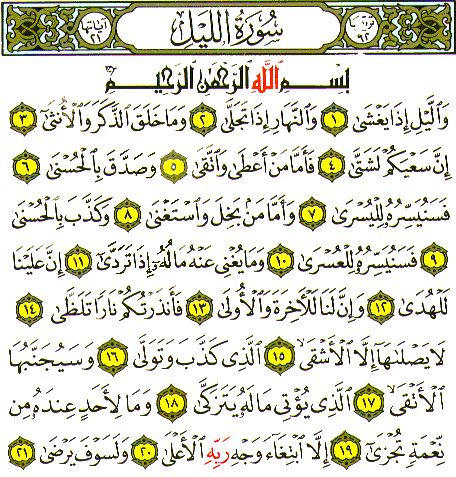 سُورَةُ اللَّيْلِ
بِسْمِ اللَّهِ الرَّحْمَٰنِ الرَّحِيمِ
وَالَّيْلِ إِذَا يَغْشَىٰ ١ وَالنَّهَارِ إِذَا تَجَلَّىٰ ٢ وَمَا خَلَقَ الذَّكَرَ وَالْأُنثَىٰ ٣
إِنَّ سَعْيَكُمْ لَشَتَّىٰ ٤ فَأَمَّا مَنْ أَعْطَىٰ وَاتَّقَىٰ ٥ وَصَدَّقَ بِالْحُسْنَىٰ ٦
فَسَنُيَسِّرُهُ لِلْيُسْرَىٰ ٧ وَأَمَّا مَنْ بَخِلَ وَاسْتَغْنَىٰ ٨ وَكَذَّبَ بِالْحُسْنَىٰ
٩ فَسَنُيَسِّرُهُ لِلْعُسْرَىٰ ١٠ وَمَا يُغْنِي عَنْهُ مَالُهُ إِذَا تَرَدَّىٰ ١١ إِنَّ عَلَيْنَا
لَلْهُدَىٰ ١٢ وَإِنَّ لَنَا لَلْآخِرَةَ وَالْأُولَىٰ ١٣ فَأَنذَرْتُكُمْ نَارًا تَلَظَّىٰ ١٤
لَا يَصْلَاهَا إِلَّا الْأَشْقَىٰ ١٥ الَّذِي كَذَّبَ وَتَوَلَّىٰ ١٦ وَسَيُجَنَّبُهَا
الْأَتْقَىٰ ١٧ الَّذِي يُؤْتِي مَالَهُ يَتَزَكَّىٰ ١٨ وَمَا لِأَحَدٍ عِندَهُ مِن
نِّعْمَةٍ تُجْزَىٰ ١٩ إِلَّا ابْتِغَاءَ وَجْهِ رَبِّهِ الْأَعْلَىٰ ٢٠ وَلَسَوْفَ يَرْضَىٰ ٢١